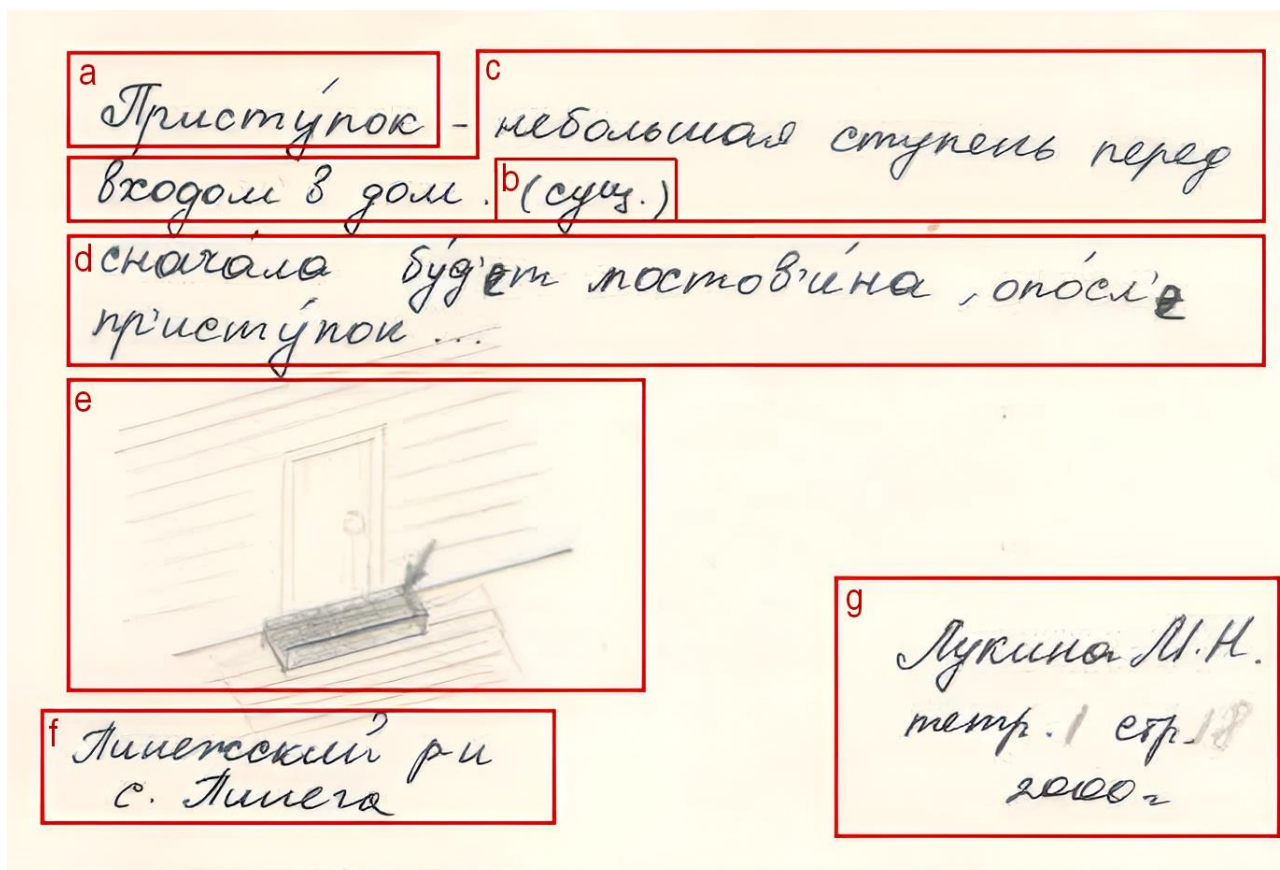 a
Присту́пок -
c
небольшая ступень перед
входом в дом.
b
(сущ.)
d
снача́ла бу́д'ет мостов'и́на, опо́сл'е
пр'исту́пок ...
e
f
Пинежский р-н
с. Пинега
g
Лукина М.Н.
тетр. 1 стр. 18
2000 г